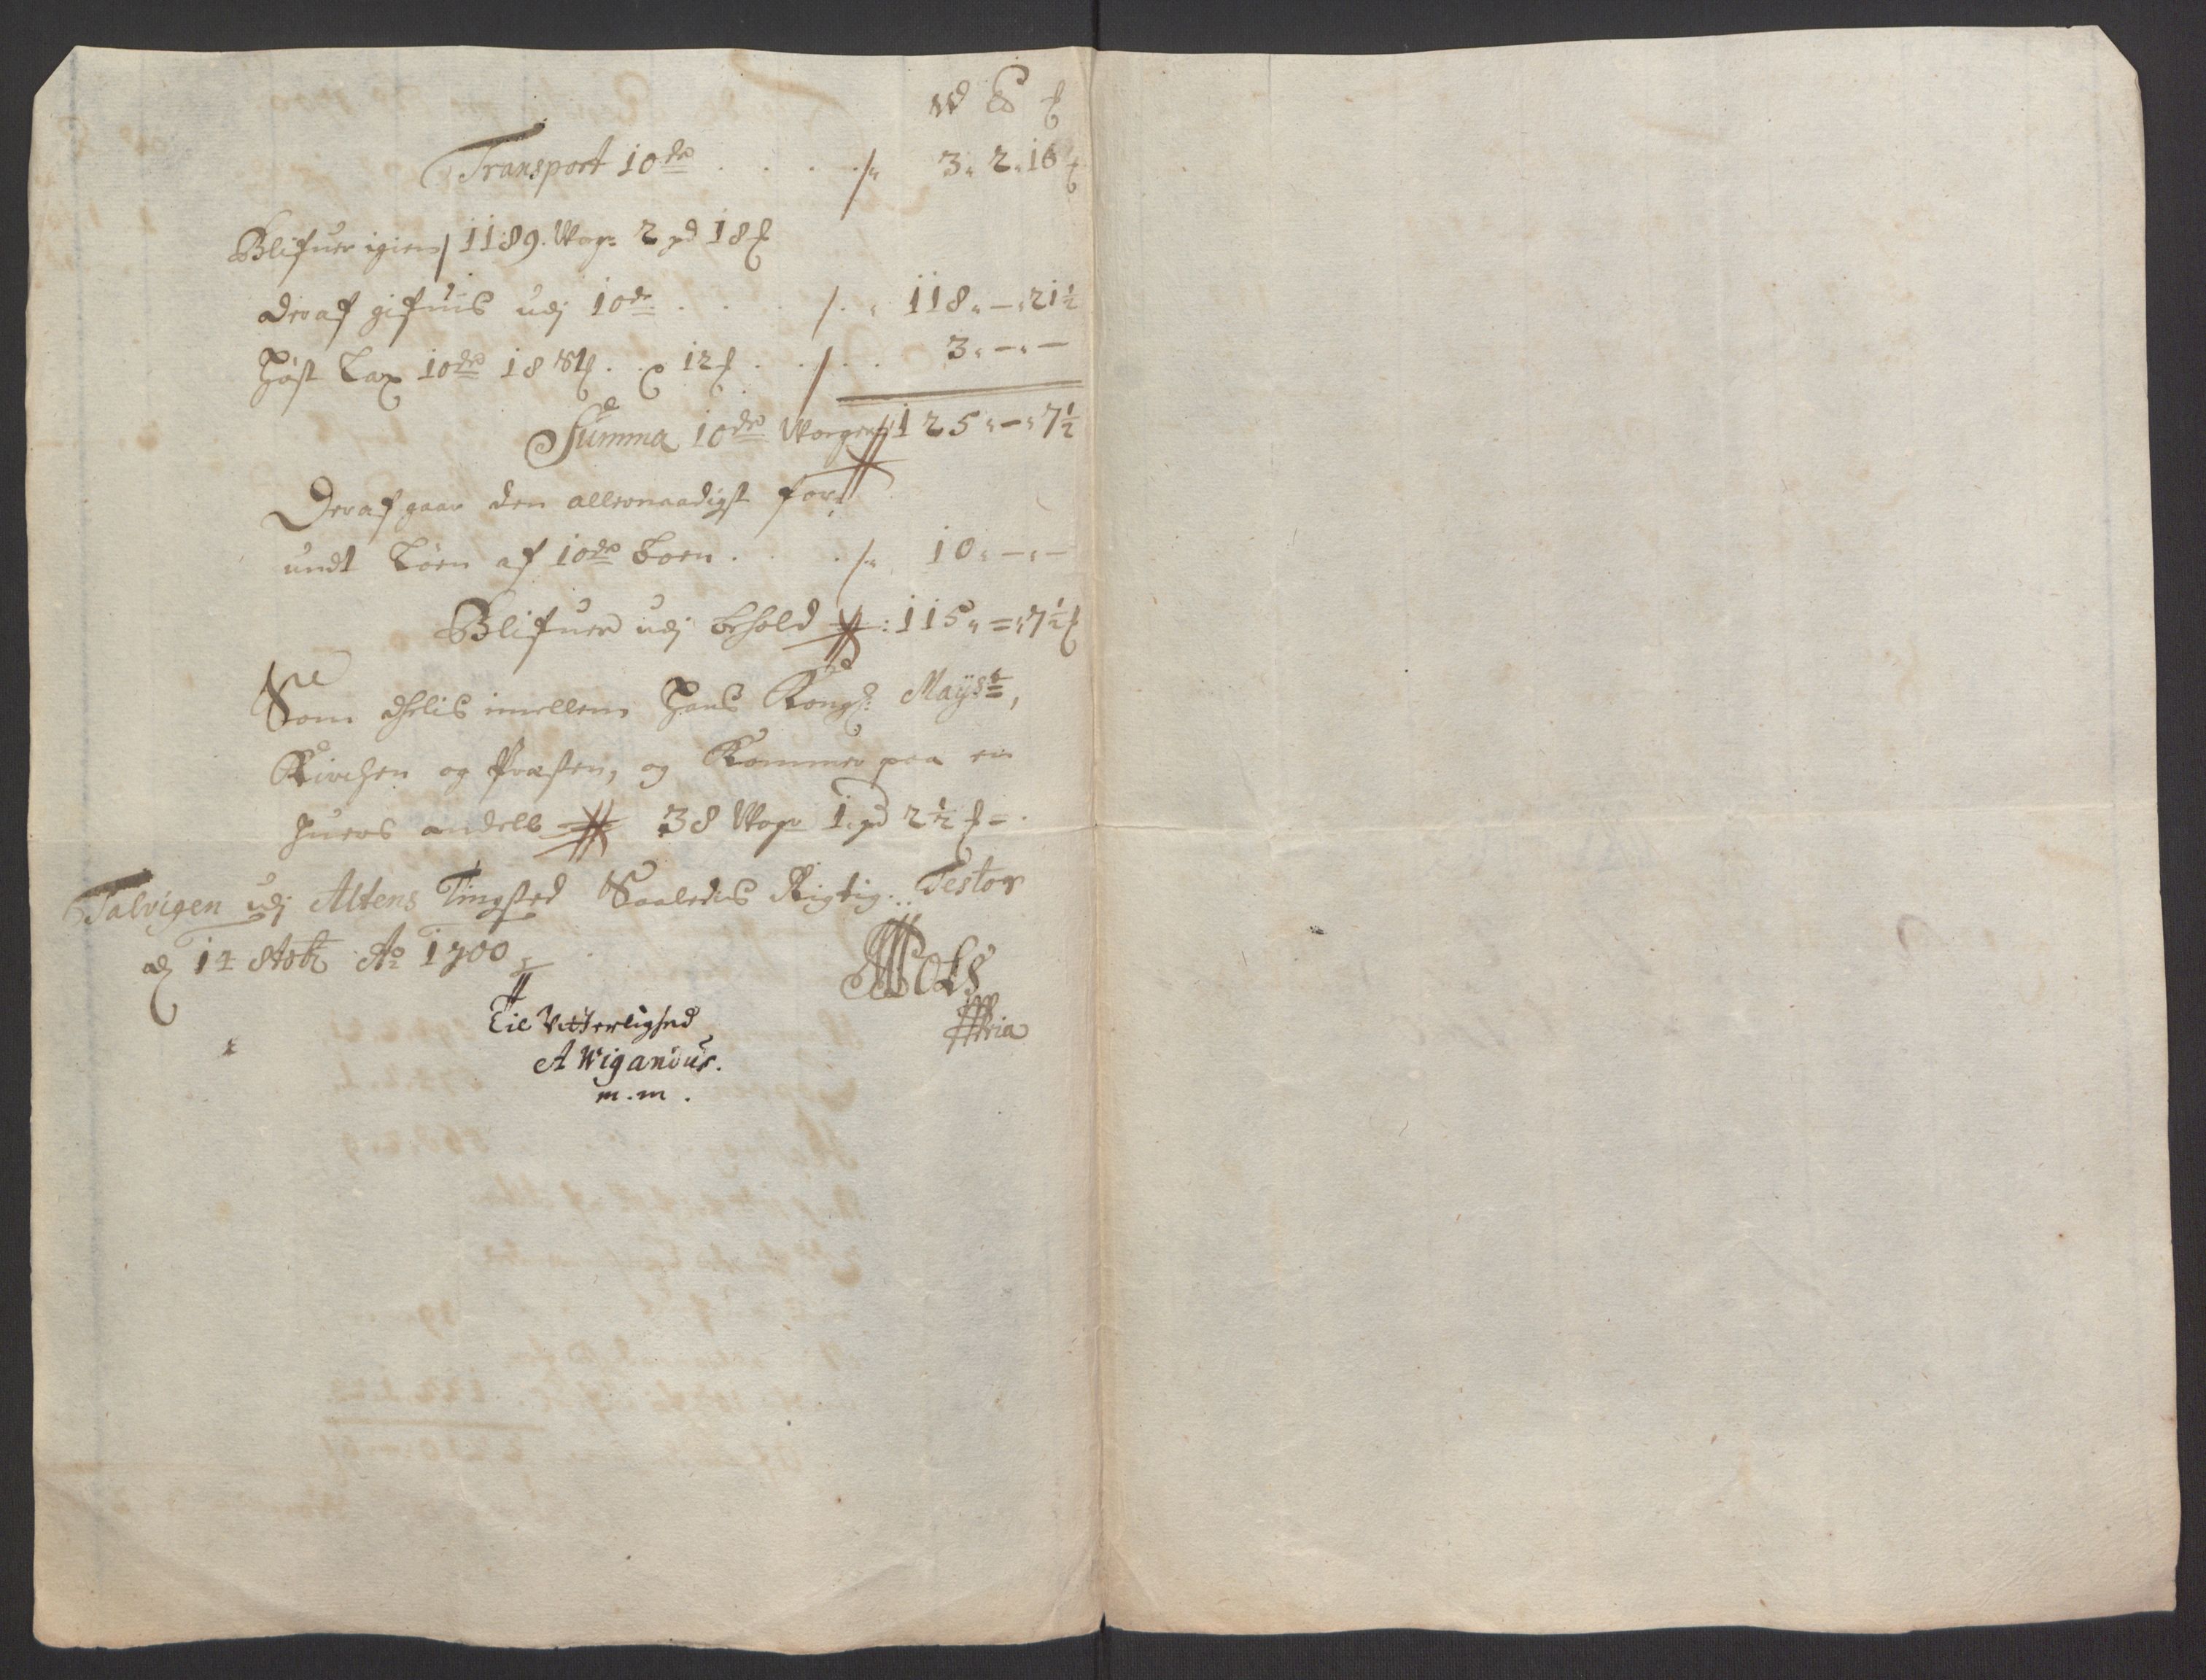 W ℔ ℔
Transport 10de . . . ./. 3. 2. 16
Blifuer igien 1189. Wog: 2 pd 18 ℔
deraf gifuis udj 10de . . . /. 118. – . 21½
Høst Lax 10de 18 . . 12 ℔ . . /. . 3. – . –
Summa 10de Woger 125. – . 7½
Deraf gaar den allernaadigst for:
undt Børn af 10de Børn . . ./. 10. – . –
Blifuer udj behold : 115. = . 7½ ℔
Som dhelis imellem Hans Kongl: Mayst:,
Kirchen og Præsten, og Kommer paa en
huers andell 38 Woge 1. pd 2½ ℔ = .
Talvigen udj Altens Tingsted Saaledis Rigtig. Testor
A° 1700
Til Vitterlighed
A Wigandus.
m.m.